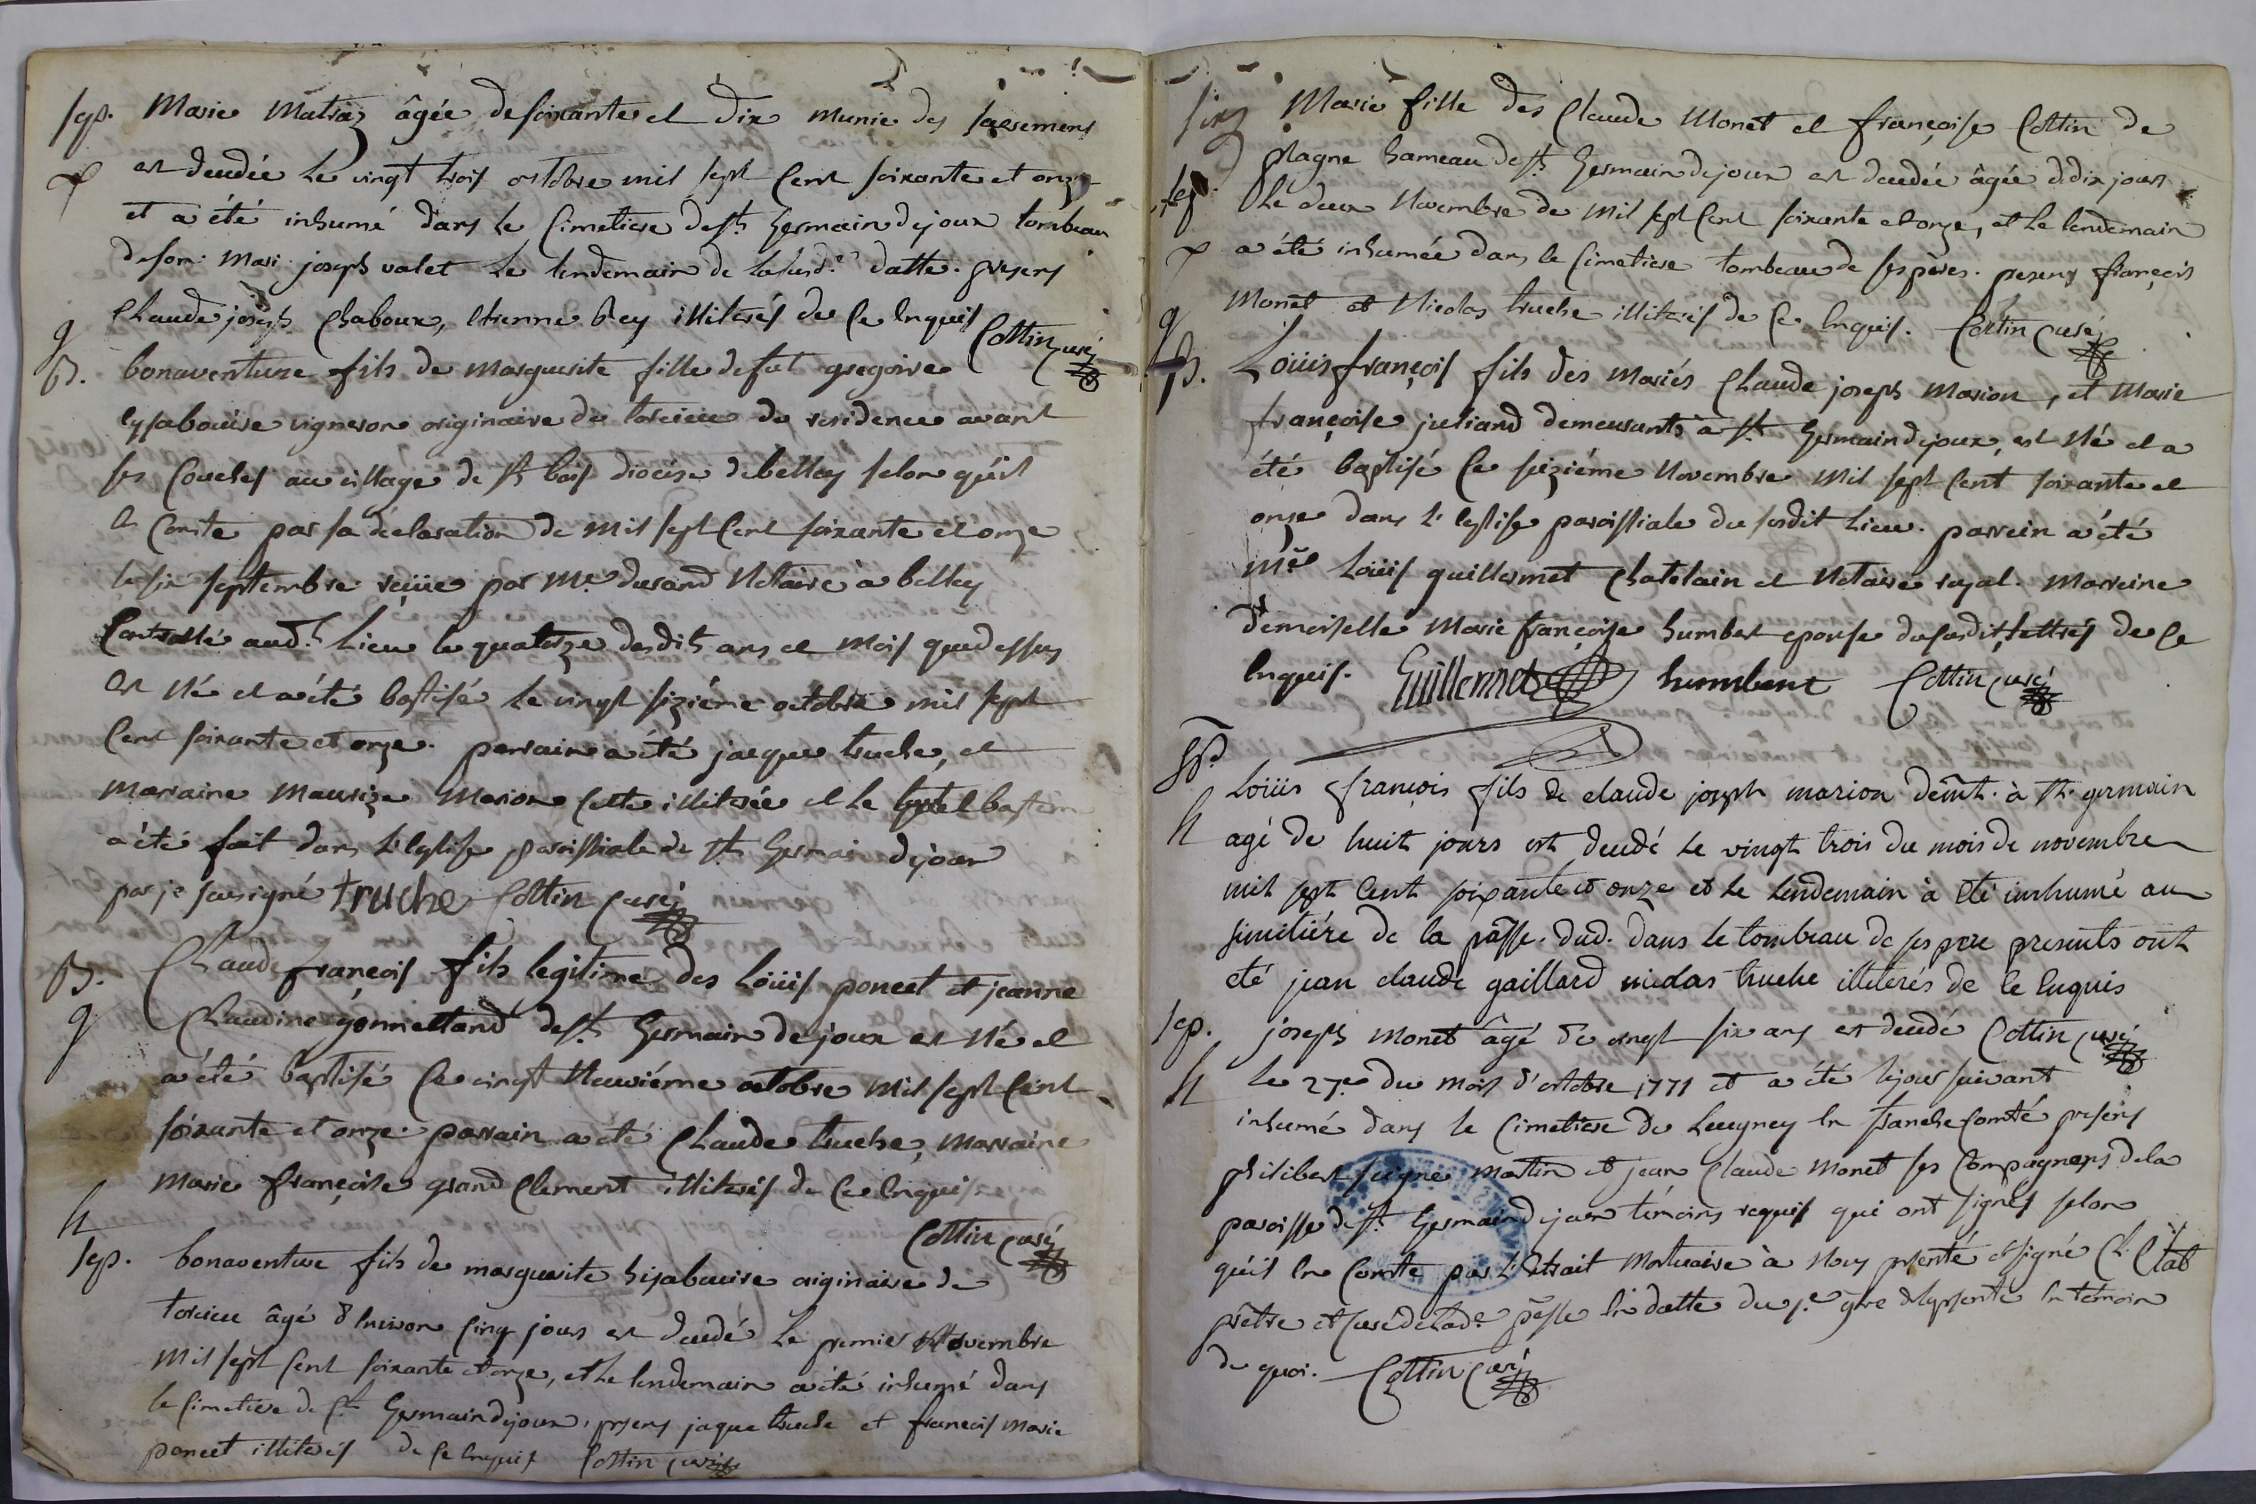 sep. Marie Matraz âgée de soixante et dix munie des sacremens
est deudée le vingt trois octobre mil sept cent soixante et onze
et a été inhumé dans le cimetiere de st germain de joux tombeau
de son mari joseph valet le lendemain de la susd.e datte. presens
Claude joseph Chaboux, etienne Rey illiterés de ce enquis Cottin curé
B. bonaventure fils de marguerite fille de fut gregoire
vigneron originaire de torcieu de residence avant
ses couches au village de st bois diocèse de belley selon qu'il
en conste par sa déclaration de mil sept cent soixante et onze
le six septembre reçüe par Me. durand Notaire à belley
Controllé aud.t lieu le quatorze desdits ans et mois que dessus
est né et a été baptisé le vingt sixième octobre mil sept
cent soixante et onze. parrain a été jacque truche, et
marraine maurize marion cette illiterée et le baptem
a été fait dans l'eglise paroissiale de st germain de joux
par je sousigné truche Cottin curé
B. Claude françois fils legitime des Loüis poncet et jeanne
Claudine gonnettand de st. germain de joux est né et
a été baptisé ce vingt neuviéme octobre mil sept cent
soixante et onze. parrain a été Claude truche, marraine
marie françoise grand Clement illiterés de ce enquis
Cottin curé
sep. bonaventure fils de marguerite originaire de
torcieu âgé d'environ cinq jours est deudé le premier Novembre
mil sept cent soixante et onze, et le lendemain a été inhumé dans
le cimetiere de st germain de joux, presens jaque truche et francois marie
poncet illiterés de ce enquis Cottin curé
Marie fille des Claude Monet et françoise Cottin de
plagne hameau de st. germain de joux est deudée âgée de dix jours
sep. le deux Novembre de mil sept cent soixante et onze, et le lendemain
a été inhumée dans le cimetiere tombeau de ses pères. presens françois
Monet et Nicolas truche illiterés de ce enquis. Cottin curé
B. Loüis françois fils des mariés Claude joseph marion, et marie
françoise juliand demeurants à st germain de joux, est né et a
été baptisé ce seizième Novembre mil sept cent soixante et
onze dans l'eglise paroissiale du susdit lieu. parrein a été
me Loüis guillermet Chatelain et Notaire royal. marreine
demoiselle Marie françoise humbert epouse du susdit, lettrés de ce
enquis. Guillermet humbert Cottin curé
Loüis françois fils de claude joseph marion demt. à st. germain
agé de huit jours est deudé le vingt trois du mois de novembre
mil sept cent soixante et onze et le lendemain a été inhumé au
simetiére de la pâsse. dud. dans le tombeau de ses pere presents ont
eté jean claude gaillard nicolas truche illiterés de ce enquis
sep. joseph monet âgé de vingt six ans est deudé Cottin curé
le 27e. du mois d'octobre 1771 et a été le jour suivant
inhumé dans le cimetiere de Leugney en franche comté presens
philibert seigne martin et jean Claude monet ses compagnons de la
paroisse de st. germain de joux témoins requis qui ont signés selon
qu'il en conste par l'extrait mortuaire à nous presenté et signé
prêtre et curé de lad.e pâsse en datte du en témoin
de quoi. Cottin curé